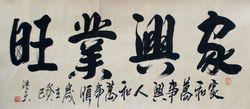 家興業旺
家和萬事興人和萬事順歲在癸巳